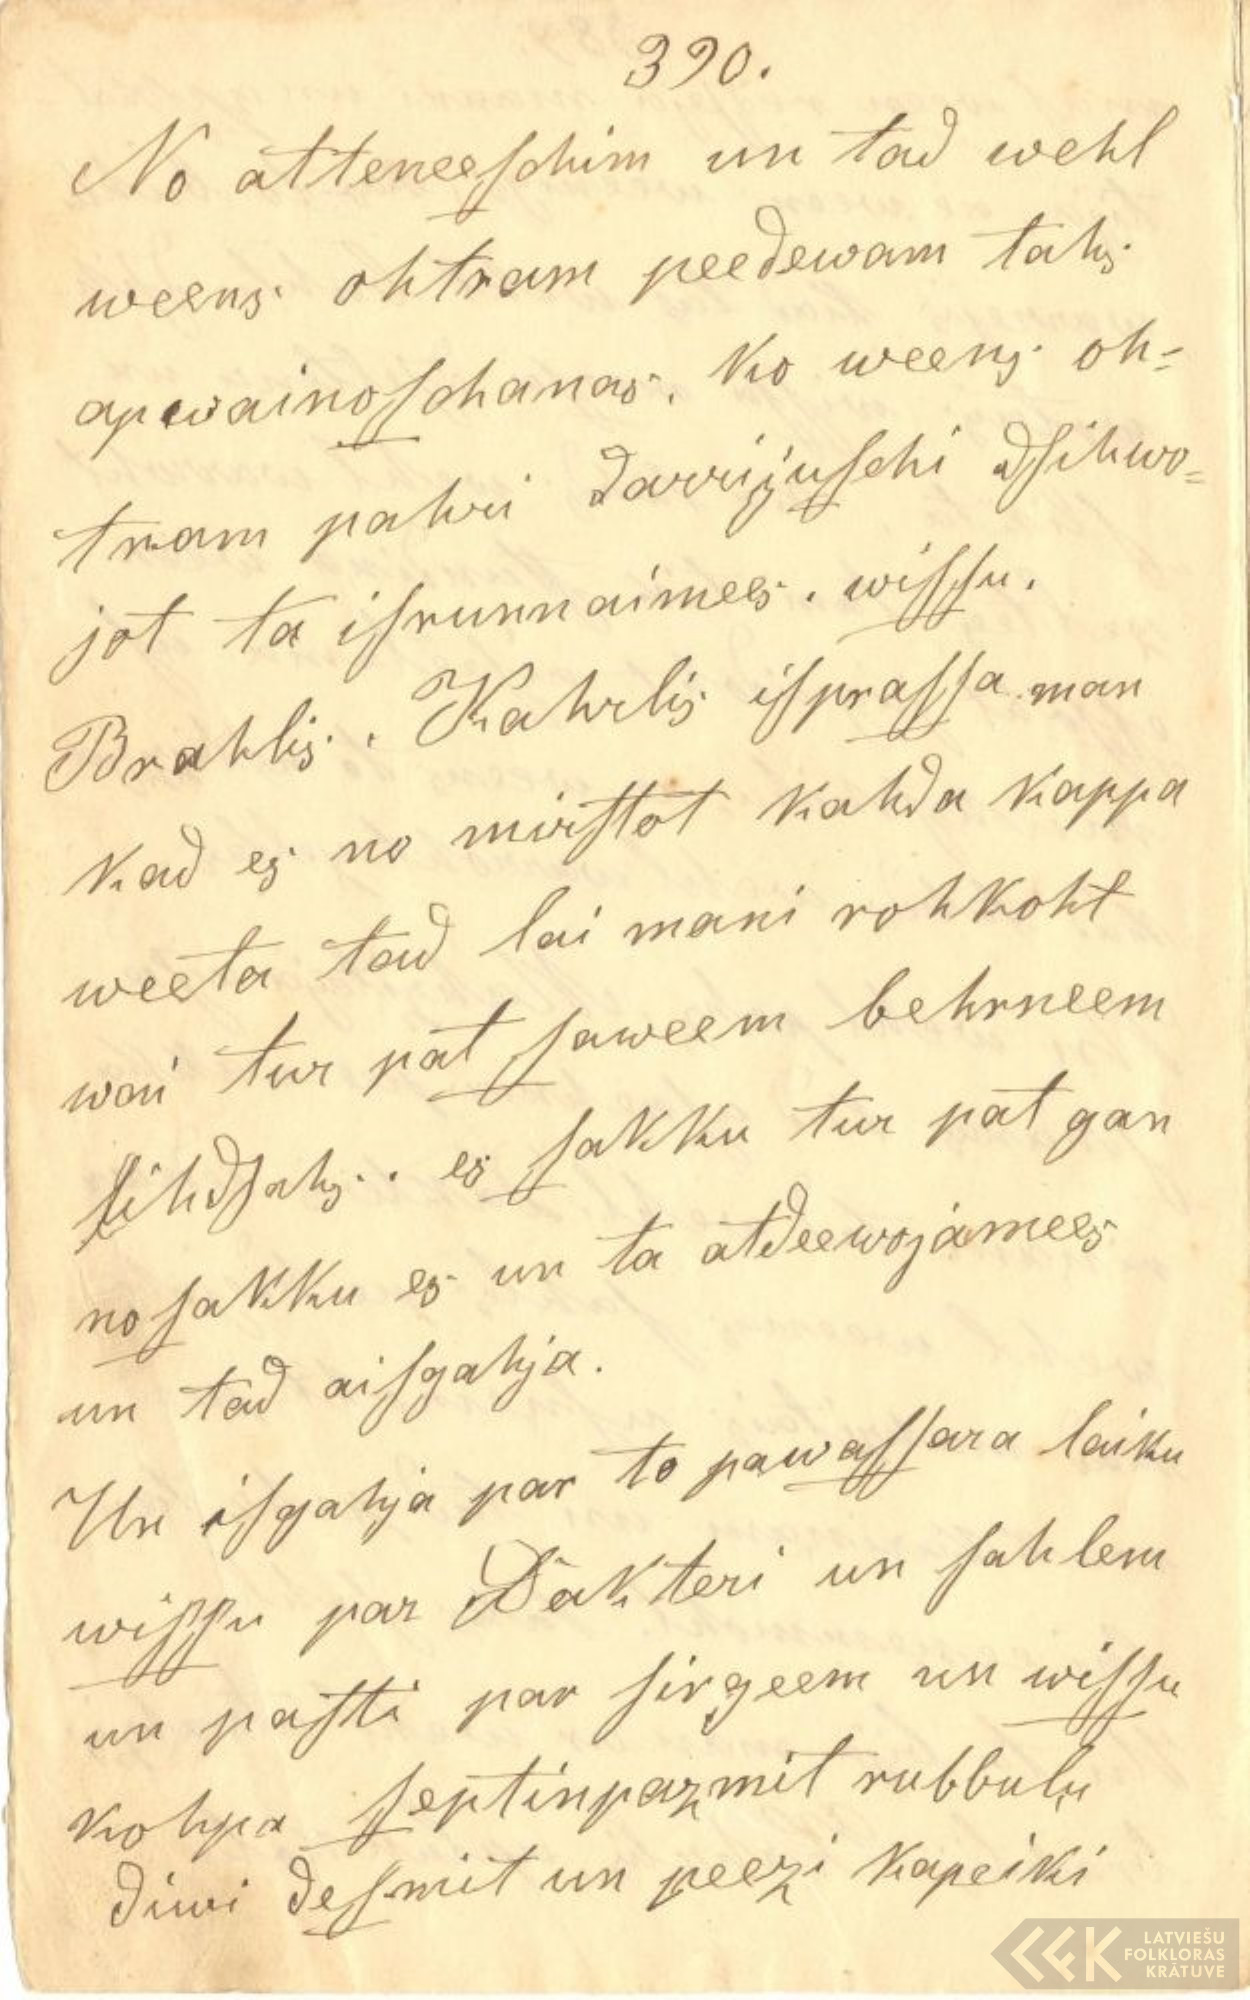 390.
No atteneeschim un tad wehl
weens ohtram peedewam tahs
apwainoschanas, ko weens oh=
tram pahri darrijuschi dsihwo=
jot ta isrunnaimees. wissu.
Brahlis. Kahrlis isprassa man
kad es no mirstot kahda kappa
weeta tad lai mani rohkoht
wai tur pat saweem behrneem
lihdsahs.. es sakku tur pat gan
nosakku es un ta atdeewojamees
un tad aisgahja.
Un isgahja par to pawassara laiku
wissu par Dakteri un sahlem
un pasti par sirgeem un wissu
kohpa septinpazmit rubbuļu
diwi desmit un peezi kapeiki
LATVIEŠU
FOLKLORAS
KRĀTUVE